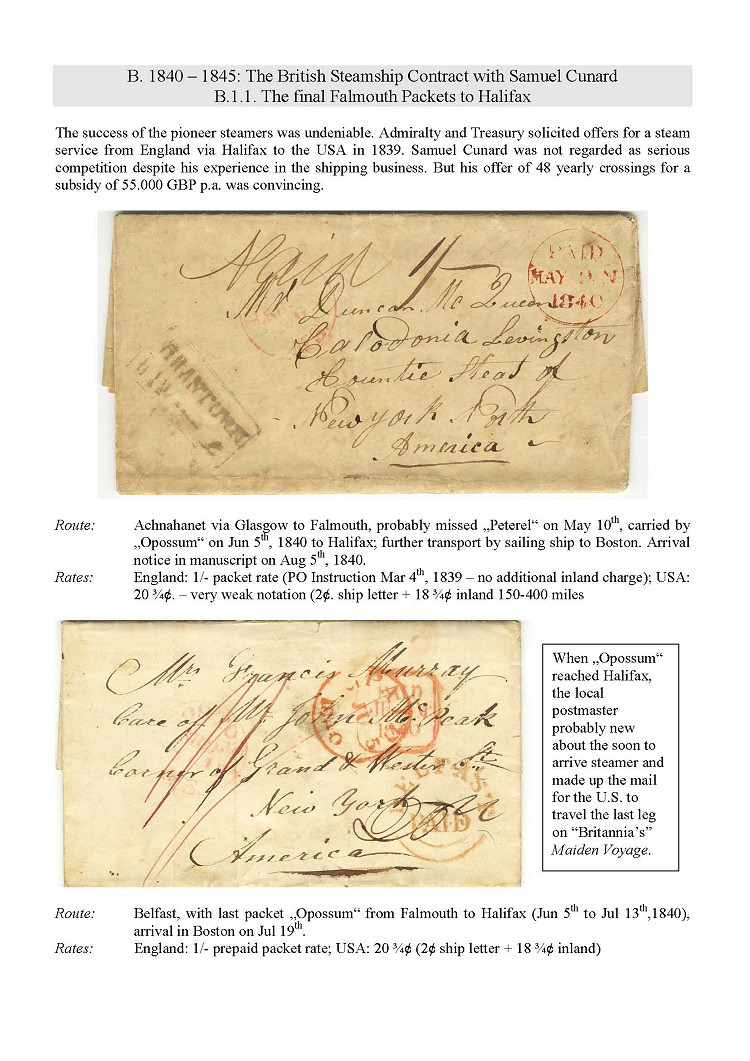 B. 1840 – 1845: The British Steamship Contract with Samuel Cunard
B.1.1. The final Falmouth Packets to Halifax
The success of the pioneer steamers was undeniable. Admiralty and Treasury solicited offers for a steam
service from England via Halifax to the USA in 1839. Samuel Cunard was not regarded as serious
competition despite his experience in the shipping business. But his offer of 48 yearly crossings for a
subsidy of 55.000 GBP p.a. was convincing.
PAID
MAY
1840
1/-
Mr Duncan Mc Queen
Caladonia Levingston
Countie Stead of
New york North
America
Route: Achnahanet via Glasgow to Falmouth, probably missed „Peterel“ on May 10th, carried by
„Opossum“ on Jun 5th, 1840 to Halifax; further transport by sailing ship to Boston. Arrival
notice in manuscript on Aug 5th, 1840.
Rates: England: 1/- packet rate (PO Instruction Mar 4th, 1839 – no additional inland charge); USA:
20 ¾¢. – very weak notation (2¢. ship letter + 18 ¾¢ inland 150-400 miles
Mrs Francis Murray
Care of Mr John McPeak
Corner of Grand & Wester St
New York
America
PAID
When „Opossum“
reached Halifax,
the local
postmaster
probably new
about the soon to
arrive steamer and
made up the mail
for the U.S. to
travel the last leg
on “Britannia’s”
Maiden Voyage.
Route: Belfast, with last packet „Opossum“ from Falmouth to Halifax (Jun 5th to Jul 13th,1840),
arrival in Boston on Jul 19th.
Rates: England: 1/- prepaid packet rate; USA: 20 ¾¢ (2¢ ship letter + 18 ¾¢ inland)